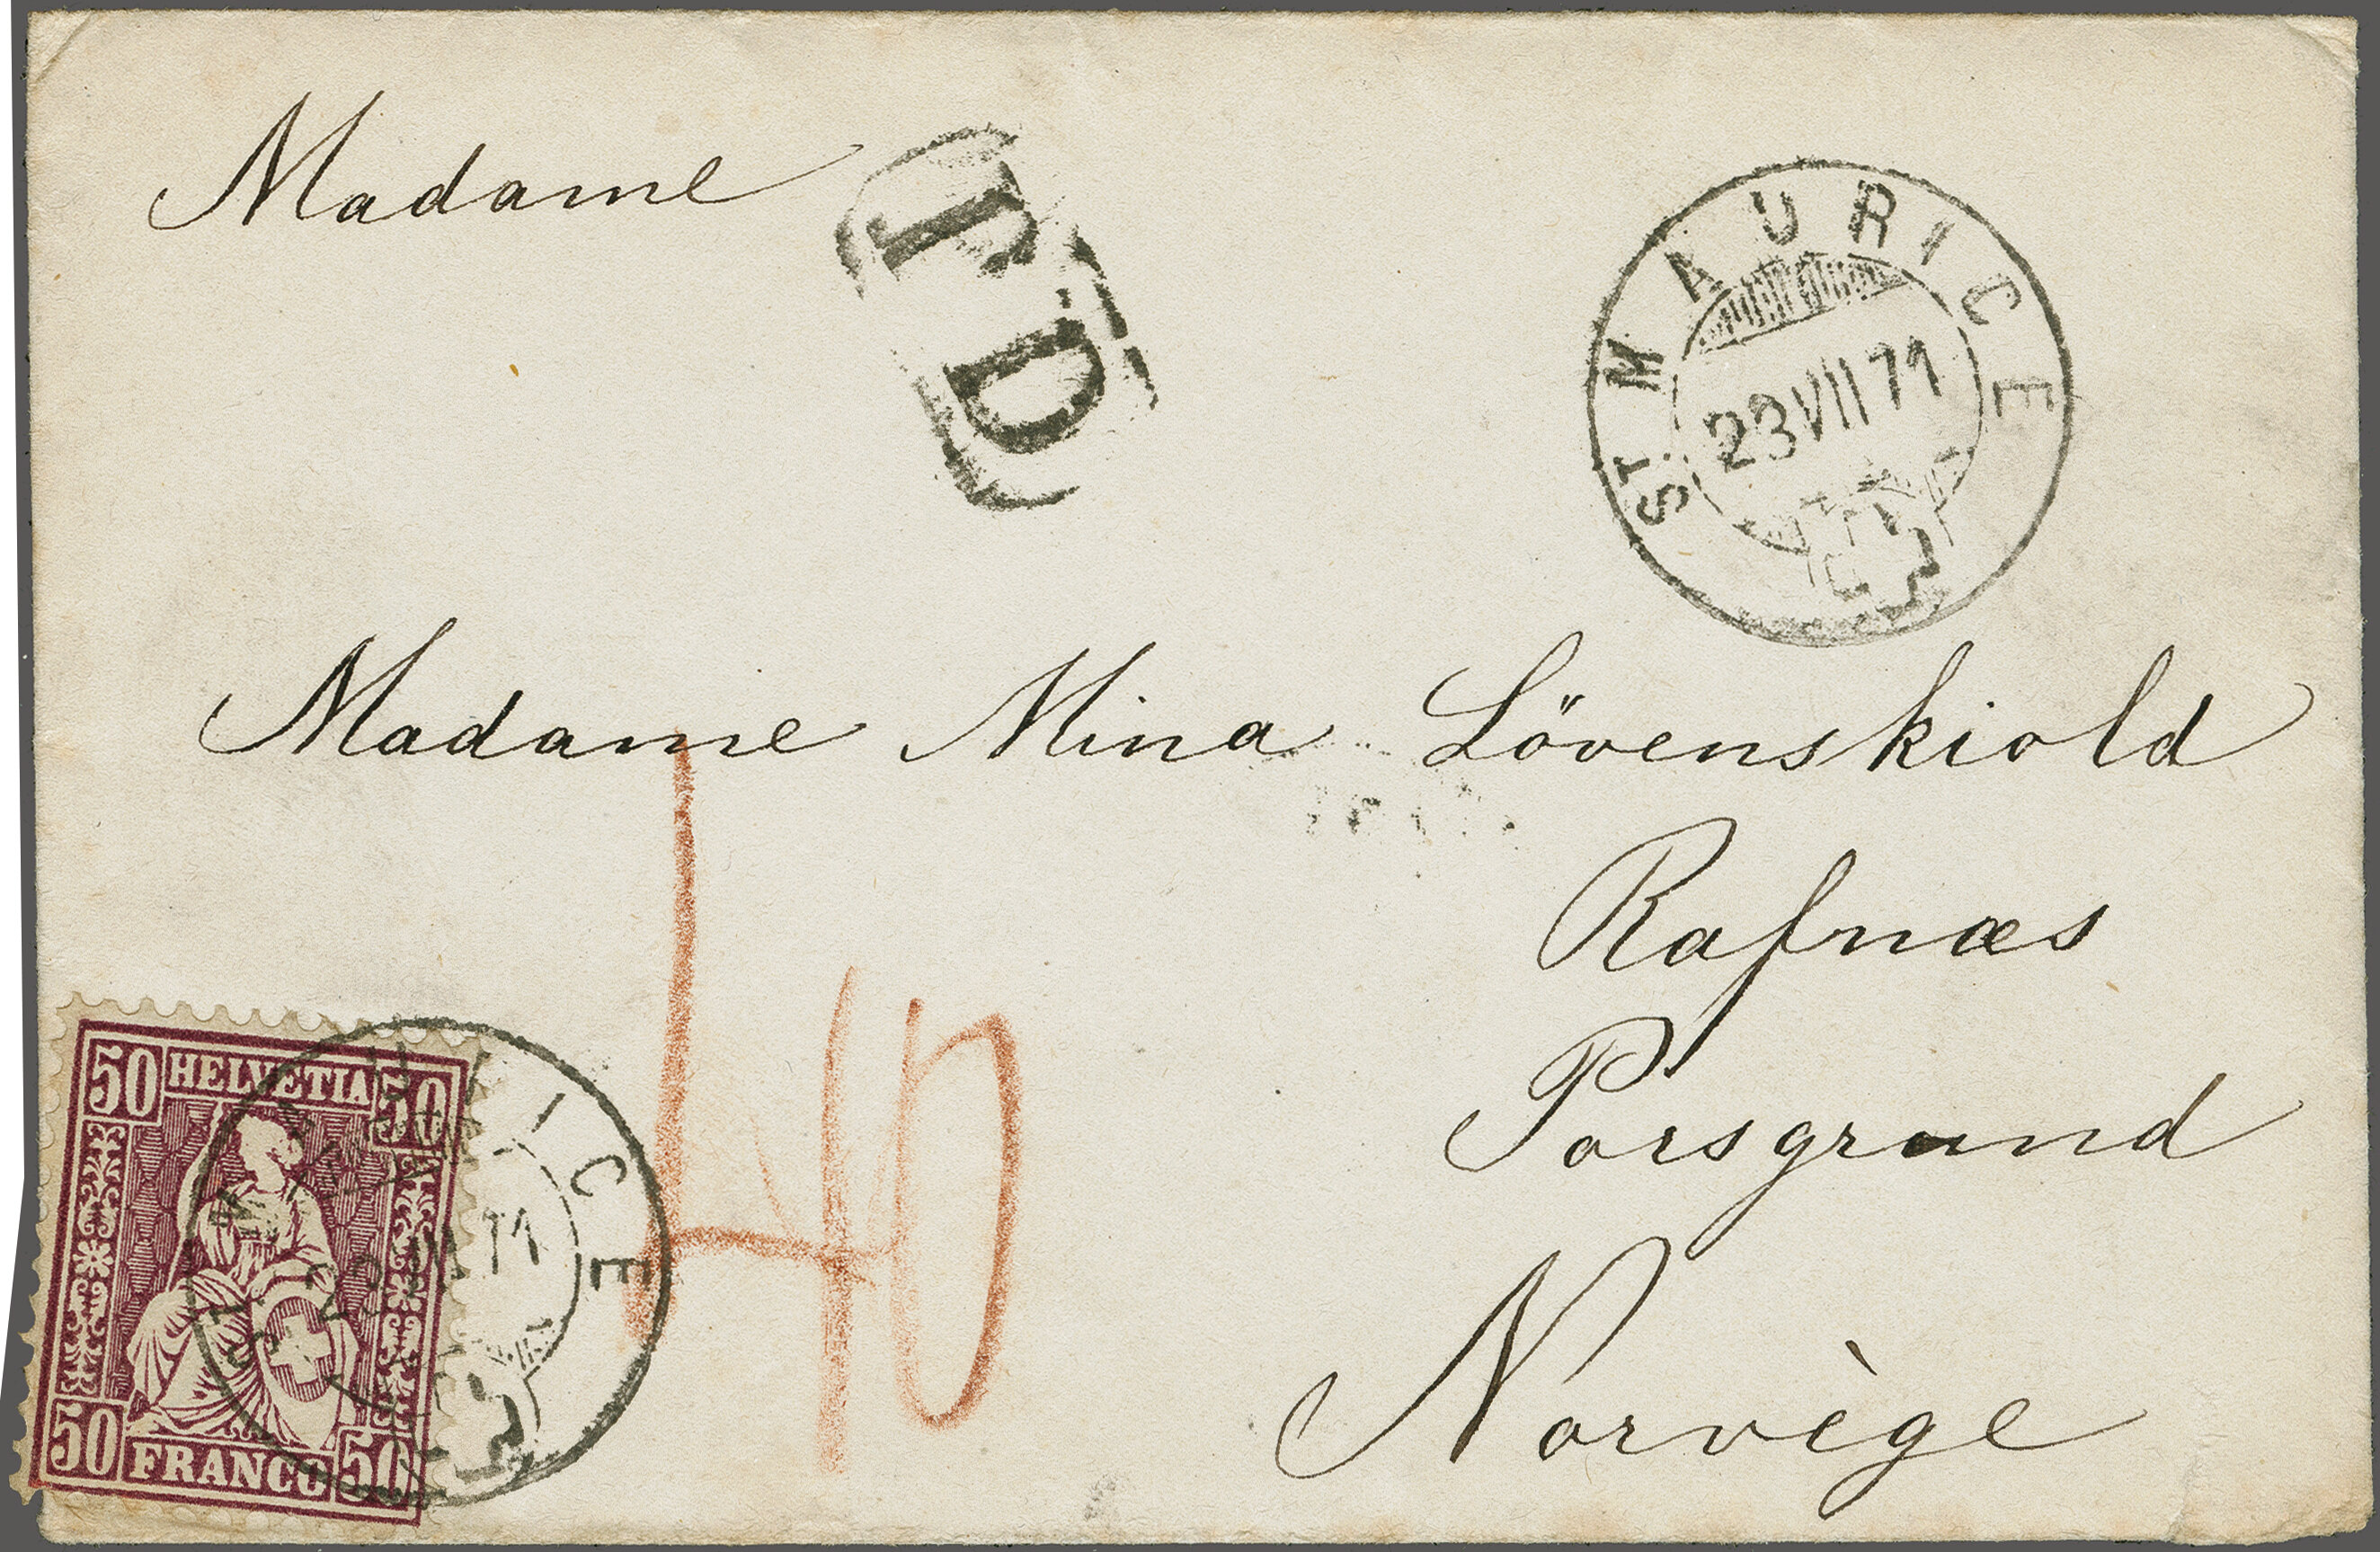 Madame
PD
ST. MAURICE
23 VII 71
Madame Mina Lövenskiold
Rafnæs
Porsgrund
Norvège
40
50 HELVETIA 50
50 FRANCO 50